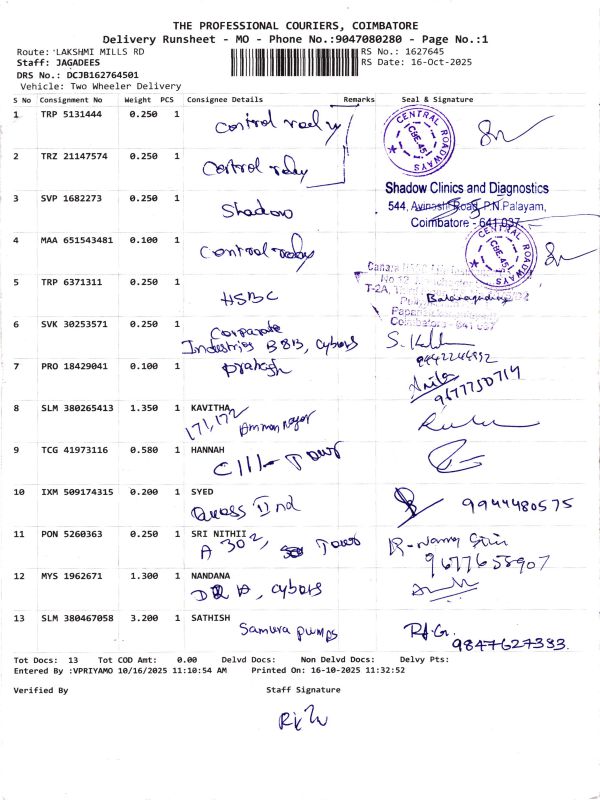 THE PROFESSIONAL COURIERS, COIMBATORE
Delivery Runsheet - MO - Phone No.:9047080280 - Page No.:1
Route: LAKSHMI MILLS RD
RS No.: 1627645
Staff: JAGADEES
RS Date: 16-Oct-2025
DRS No.: DCJB162764501
Vehicle: Two Wheeler Delivery
S No Consignment No Weight PCS Consignee Details Remarks Seal & Signature
1 TRP 5131444 0.250 1
CENTRAL ROADWAYS CBE-45
2 TRZ 21147574 0.250 1 Control relay
3 SVP 1682273 0.250 1 Shadow
Shadow Clinics and Diagnostics
544, Avinashi Road, P.N.Palayam,
Coimbatore - 641 037
4 MAA 651543481 0.100 1 Control relay
CENTRAL ROADWAYS CBE-45
5 TRP 6371311 0.250 1 HSBC
Canara HSBC Life
T-2A, Third
Coimbatore - 641 037
6 SVK 30253571 0.250 1 Corporate
Industries B8B, cybers
7 PRO 18429041 0.100 1 prakash
9677730714
8 SLM 380265413 1.350 1 KAVITHA
171,172 Amman nagar
9 TCG 41973116 0.580 1 HANNAH
10 IXM 509174315 0.200 1 SYED
9944480575
11 PON 5260363 0.250 1 SRI NITHII
A 302, Tower
9677658907
12 MYS 1962671 1.300 1 NANDANA
cybers
13 SLM 380467058 3.200 1 SATHISH
Samura pumps
9847627333.
Tot Docs: 13 Tot COD Amt: 0.00 Delvd Docs: Non Delvd Docs: Delvy Pts:
Entered By :VPRIYAMO 10/16/2025 11:10:54 AM Printed On: 16-10-2025 11:32:52
Verified By Staff Signature